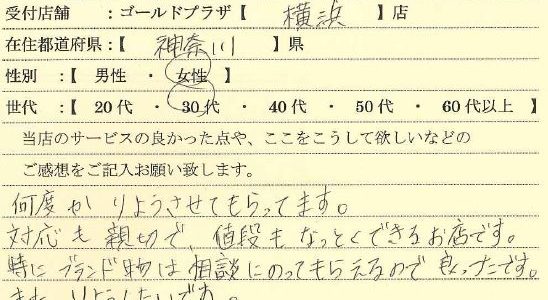 受付店舗　：ゴールドプラザ【　横浜　】店
在住都道府県：【　神奈川　】県
性別　：【　男性　・　女性　】
世代　：【　20代　・　30代　・　40代　・　50代　・　60代以上　】
当店のサービスの良かった点や、ここをこうして欲しいなどの
ご感想をご記入お願い致します。
何度か りようさせてもらってます。
対応も親切で、値段もなっとくできるお店です。
特にブランド物は相談にのってもらえるので良かったです。
また りようしたいです。